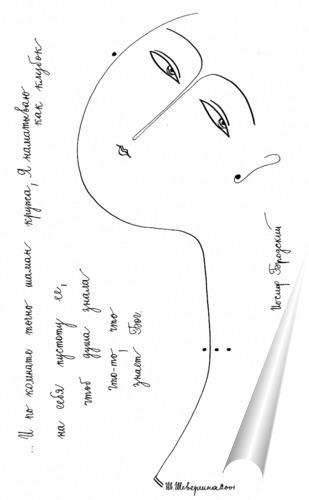 ... И по комнате точно шаман кружа, Я наматываю как клубок
на себя пустоту ее,
чтоб душа знала
что-то, что
знает Бог.
Иосиф Бродский